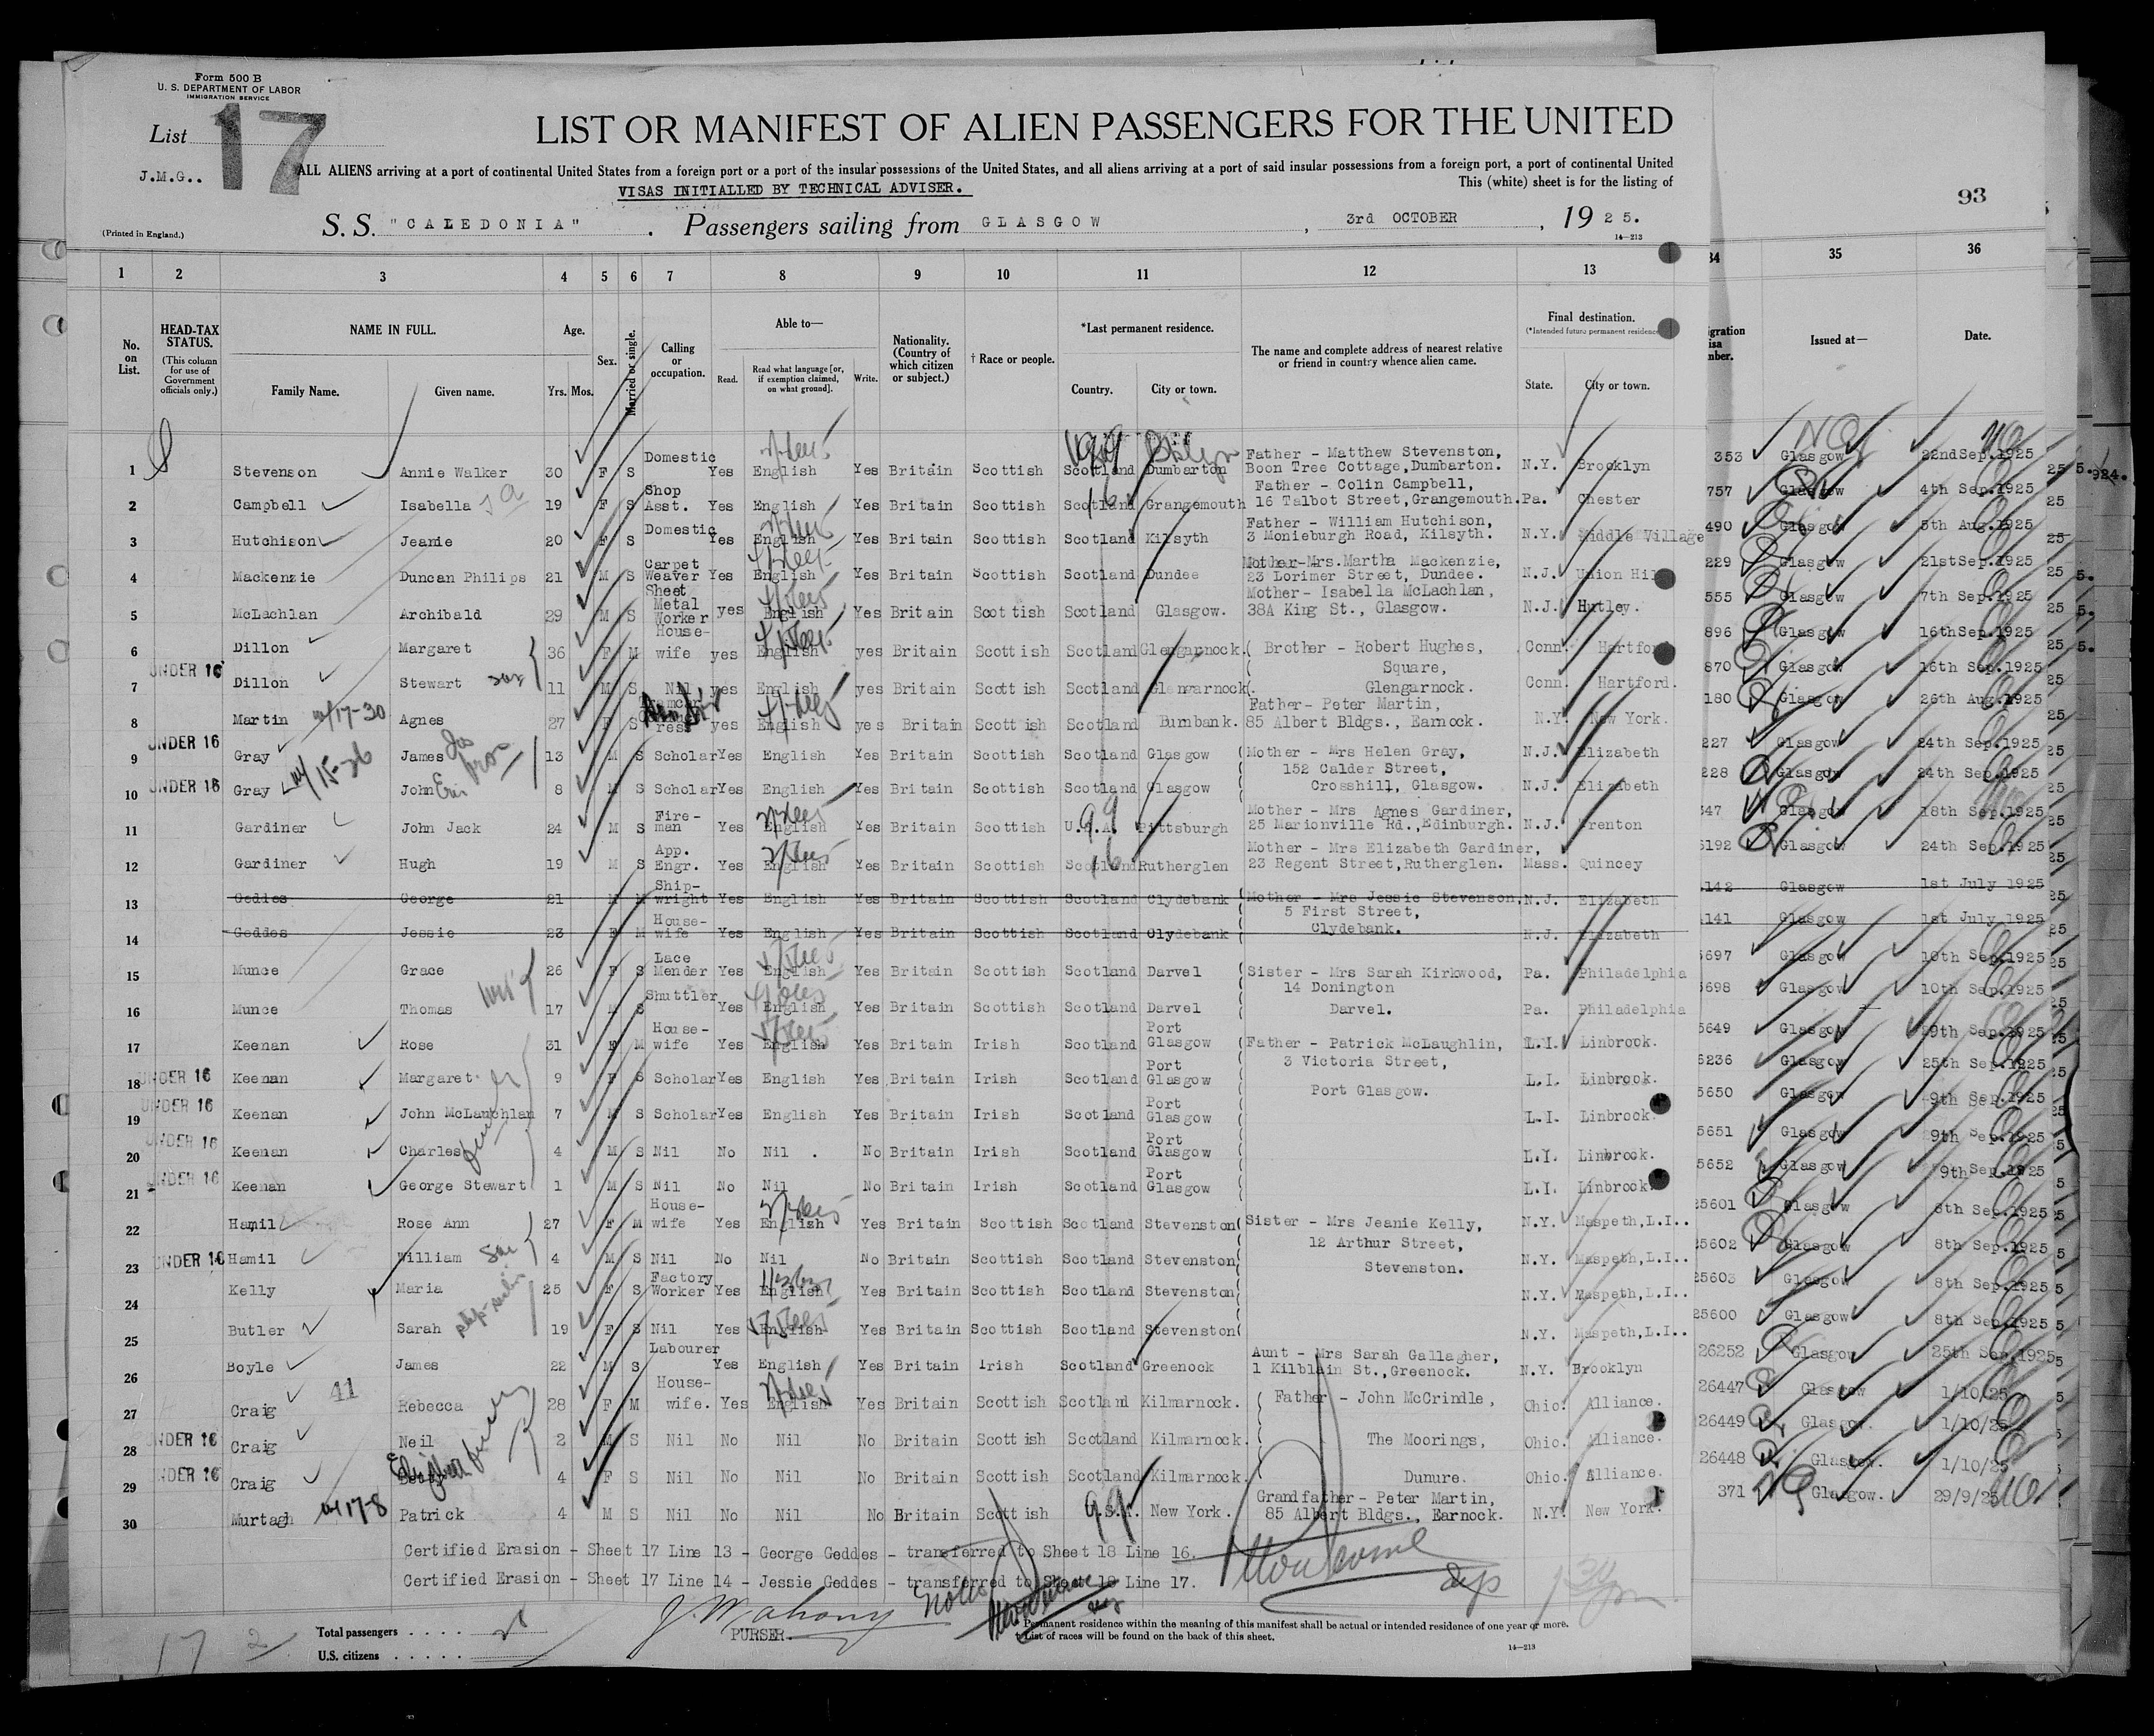 Form 500 B
U. S. DEPARTMENT OF LABOR
IMMIGRATION SERVICE
List 17
J.M.G..
LIST OR MANIFEST OF ALIEN PASSENGERS FOR THE UNITED
ALL ALIENS arriving at a port of continental United States from a foreign port or a port of the insular possessions of the United States, and all aliens arriving at a port of said insular possessions from a foreign port, a port of continental United
VISAS INITIALLED BY TECHNICAL ADVISER.
This (white) sheet is for the listing of
93
(Printed in England.)
S. S. "CALEDONIA" . Passengers sailing from GLASGOW , 3rd OCTOBER , 1925.
14—213
1 2 3 4 5 6 7 8 9 10 11 12 13 34 35 36
No. on List.
HEAD-TAX STATUS.
(This column for use of Government officials only.)
NAME IN FULL.
Family Name. Given name.
Age.
Yrs. Mos.
Sex.
Married or single.
Calling or occupation.
Able to—
Read. Read what language [or, if exemption claimed, on what ground]. Write.
Nationality. (Country of which citizen or subject.)
† Race or people.
*Last permanent residence.
Country. City or town.
The name and complete address of nearest relative or friend in country whence alien came.
Final destination.
(*Intended future permanent residence
State. City or town.
Issued at— Date.
1 Stevenson Annie Walker 30 F S Domestic Yes English Yes Britain Scottish Scotland Dumbarton Father - Matthew Stevenston, Boon Tree Cottage, Dumbarton. N.Y. Brooklyn 353 Glasgow 22nd Sep. 1925
2 Campbell Isabella 19 F S Shop Asst. Yes English Yes Britain Scottish Scotland Grangemouth Father - Colin Campbell, 16 Talbot Street, Grangemouth. Pa. Chester 757 Glasgow 4th Sep. 1925
3 Hutchison Jeanie 20 F S Domestic Yes English Yes Britain Scottish Scotland Kilsyth Father - William Hutchison, 3 Monieburgh Road, Kilsyth. N.Y. Middle Village 490 Glasgow 5th Aug. 1925
4 Mackenzie Duncan Philips 21 M S Carpet Weaver Yes English Yes Britain Scottish Scotland Dundee Mother-Mrs. Martha Mackenzie, 23 Lorimer Street, Dundee. N.J. Union Hil 229 Glasgow 21st Sep. 1925
5 McLachlan Archibald 29 M S Sheet Metal Worker yes English Yes Britain Scottish Scotland Glasgow. Mother- Isabella McLachlan, 38A King St., Glasgow. N.J. Hutley. 555 Glasgow 7th Sep. 1925
6 Dillon Margaret 36 F M House-wife yes English yes Britain Scottish Scotland Glengarnock. ( Brother - Robert Hughes, Conn. Hartfor 896 Glasgow 16th Sep. 1925
UNDER 16
7 Dillon Stewart son 11 M S Nil yes English yes Britain Scottish Scotland Glengarnock. Square, Glengarnock. Conn. Hartford. 870 Glasgow 16th Sep. 1925
8 Martin Agnes 27 F S yes English yes Britain Scottish Scotland Burnbank. Father- Peter Martin, 85 Albert Bldgs., Earnock. N.Y. New York. 180 Glasgow 26th Aug. 1925
UNDER 16
9 Gray James 13 M S Scholar Yes English Yes Britain Scottish Scotland Glasgow (Mother - Mrs Helen Gray, 152 Calder Street, N.J. Elizabeth 227 Glasgow 24th Sep. 1925
UNDER 16
10 Gray John 8 M S Scholar Yes English Yes Britain Scottish Scotland Glasgow Crosshill, Glasgow. N.J. Elizabeth 228 Glasgow 24th Sep. 1925
11 Gardiner John Jack 24 M S Fire-man Yes English Yes Britain Scottish U.S.A. Pittsburgh Mother - Mrs Agnes Gardiner, 25 Marionville Rd., Edinburgh. N.J. Trenton 347 Glasgow 18th Sep. 1925
12 Gardiner Hugh 19 M S App. Engr. Yes English Yes Britain Scottish Scotland Rutherglen Mother - Mrs Elizabeth Gardiner, 23 Regent Street, Rutherglen. Mass. Quincey 5192 Glasgow 24th Sep. 1925
13 Geddes George 21 M M Ship-wright Yes English Yes Britain Scottish Scotland Clydebank (Mother - Mrs Jessie Stevenson, 5 First Street, N.J. Elizabeth 142 Glasgow 1st July 1925
14 Geddes Jessie 23 F M House-wife Yes English Yes Britain Scottish Scotland Clydebank Clydebank. N.J. Elizabeth 141 Glasgow 1st July 1925
15 Munce Grace 26 F S Lace Mender Yes English Yes Britain Scottish Scotland Darvel Sister - Mrs Sarah Kirkwood, 14 Donington Pa. Philadelphia 5697 Glasgow 10th Sep. 1925
16 Munce Thomas 17 M S Shuttler Yes English Yes Britain Scottish Scotland Darvel Darvel. Pa. Philadelphia 5698 Glasgow 10th Sep. 1925
17 Keenan Rose 31 F M House-wife Yes English Yes Britain Irish Scotland Port Glasgow Father - Patrick McLaughlin, 3 Victoria Street, L.I. Linbrook. 5649 Glasgow 9th Sep. 1925
UNDER 16
18 Keenan Margaret 9 F S Scholar Yes English Yes Britain Irish Scotland Port Glasgow Port Glasgow. L.I. Linbrook. 6236 Glasgow 25th Sep. 1925
UNDER 16
19 Keenan John McLauchlan 7 M S Scholar Yes English Yes Britain Irish Scotland Port Glasgow L.I. Linbrook. 5650 Glasgow 9th Sep. 1925
UNDER 16
20 Keenan Charles 4 M S Nil No Nil . No Britain Irish Scotland Port Glasgow L.I. Linbrook. 5651 Glasgow 9th Sep. 1925
UNDER 16
21 Keenan George Stewart 1 M S Nil No Nil No Britain Irish Scotland Port Glasgow L.I. Linbrook. 5652 Glasgow 9th Sep. 1925
22 Hamil Rose Ann 27 F M House-wife Yes English Yes Britain Scottish Scotland Stevenston (Sister - Mrs Jeanie Kelly, 12 Arthur Street, N.Y. Maspeth, L.I.. 25601 Glasgow 8th Sep. 1925
UNDER 16
23 Hamil William son 4 M S Nil No Nil No Britain Scottish Scotland Stevenston( Stevenston. N.Y. Maspeth, L.I.. 25602 Glasgow 8th Sep. 1925
24 Kelly Maria 25 F S Factory Worker Yes English Yes Britain Scottish Scotland Stevenston( N.Y. Maspeth, L.I.. 25603 Glasgow 8th Sep. 1925
25 Butler Sarah 19 F S Nil Yes English Yes Britain Scottish Scotland Stevenston( N.Y. Maspeth, L.I.. 25600 Glasgow 8th Sep. 1925
26 Boyle James 22 M S Labourer Yes English Yes Britain Irish Scotland Greenock Aunt - Mrs Sarah Gallagher, 1 Kilblain St., Greenock. N.Y. Brooklyn 26252 Glasgow 25th Sep. 1925
27 Craig 41 Rebecca 28 F M House-wife. Yes English Yes Britain Scottish Scotland Kilmarnock. ( Father - John McCrindle, Ohio. Alliance. 26447 Glasgow 1/10/25
UNDER 16
28 Craig Neil 2 M S Nil No Nil No Britain Scottish Scotland Kilmarnock. The Moorings, Ohio. Alliance. 26449 Glasgow. 1/10/25
UNDER 16
29 Craig Betty 4 F S Nil No Nil No Britain Scottish Scotland Kilmarnock. Dunure. Ohio. Alliance. 26448 Glasgow. 1/10/25
30 Murtagh w 17-8 Patrick 4 M S Nil No Nil No Britain Scottish U.S.A. New York. Grandfather - Peter Martin, 85 Albert Bldgs., Earnock. N.Y. New York. 371 Glasgow. 29/9/25
Certified Erasion - Sheet 17 Line 13 - George Geddes - transferred to Sheet 18 Line 16.
Certified Erasion - Sheet 17 Line 14 - Jessie Geddes - transferred to Sheet 18 Line 17.
J. W. Mahony
PURSER.
Total passengers . . . .
U.S. citizens . . . . .
17
Permanent residence within the meaning of this manifest shall be actual or intended residence of one year or more.
† List of races will be found on the back of this sheet.
14—213